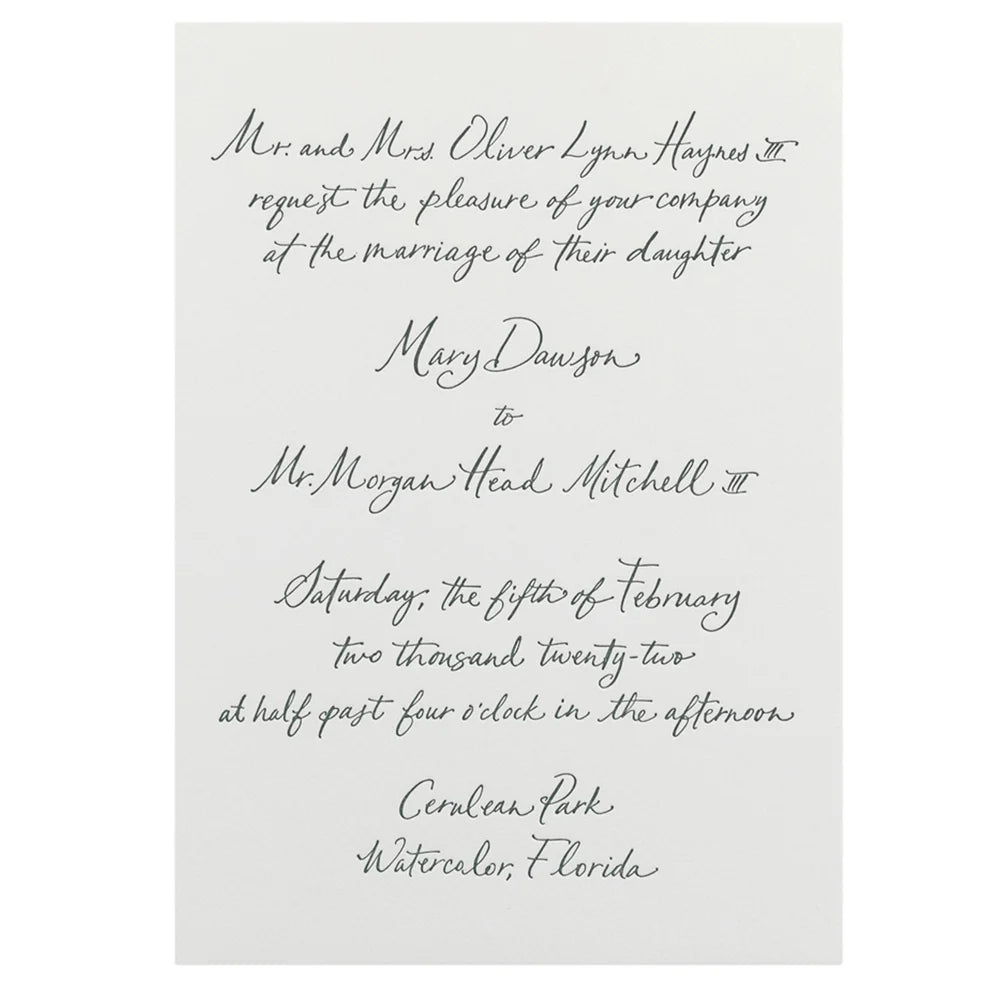 Mr. and Mrs. Oliver Lynn Haynes III
request the pleasure of your company
at the marriage of their daughter
Mary Dawson
to
Mr. Morgan Head Mitchell III
Saturday, the fifth of February
two thousand twenty-two
at half past four o'clock in the afternoon
Cerulean Park
Watercolor, Florida